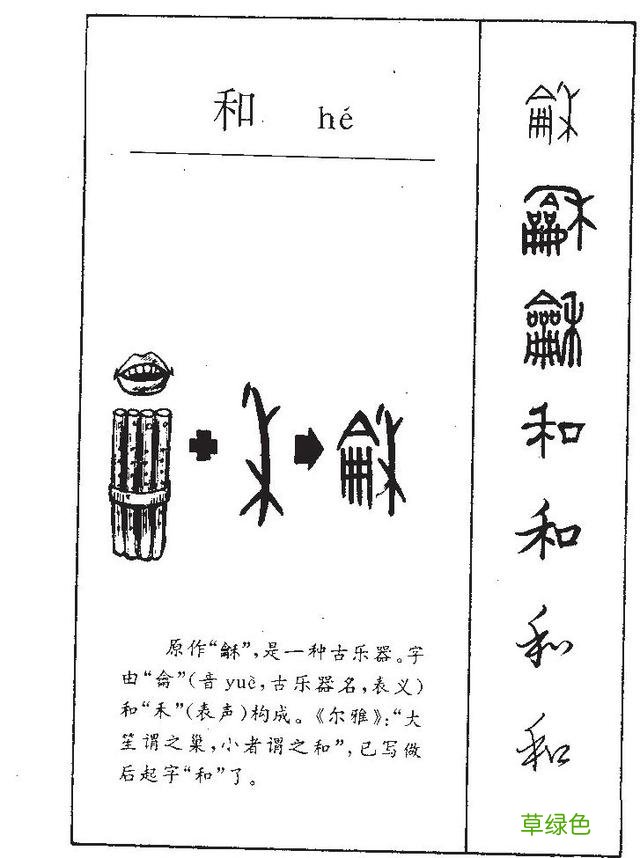 和 hé
原作“龢”,是一种古乐器。字
由“龠”(音 yuè,古乐器名,表义)
和“禾”(表声)构成。《尔雅》:“大
笙谓之巢,小者谓之和”,已写做
后起字“和”了。
龢
龢
龢
和
和
和
和
草绿色